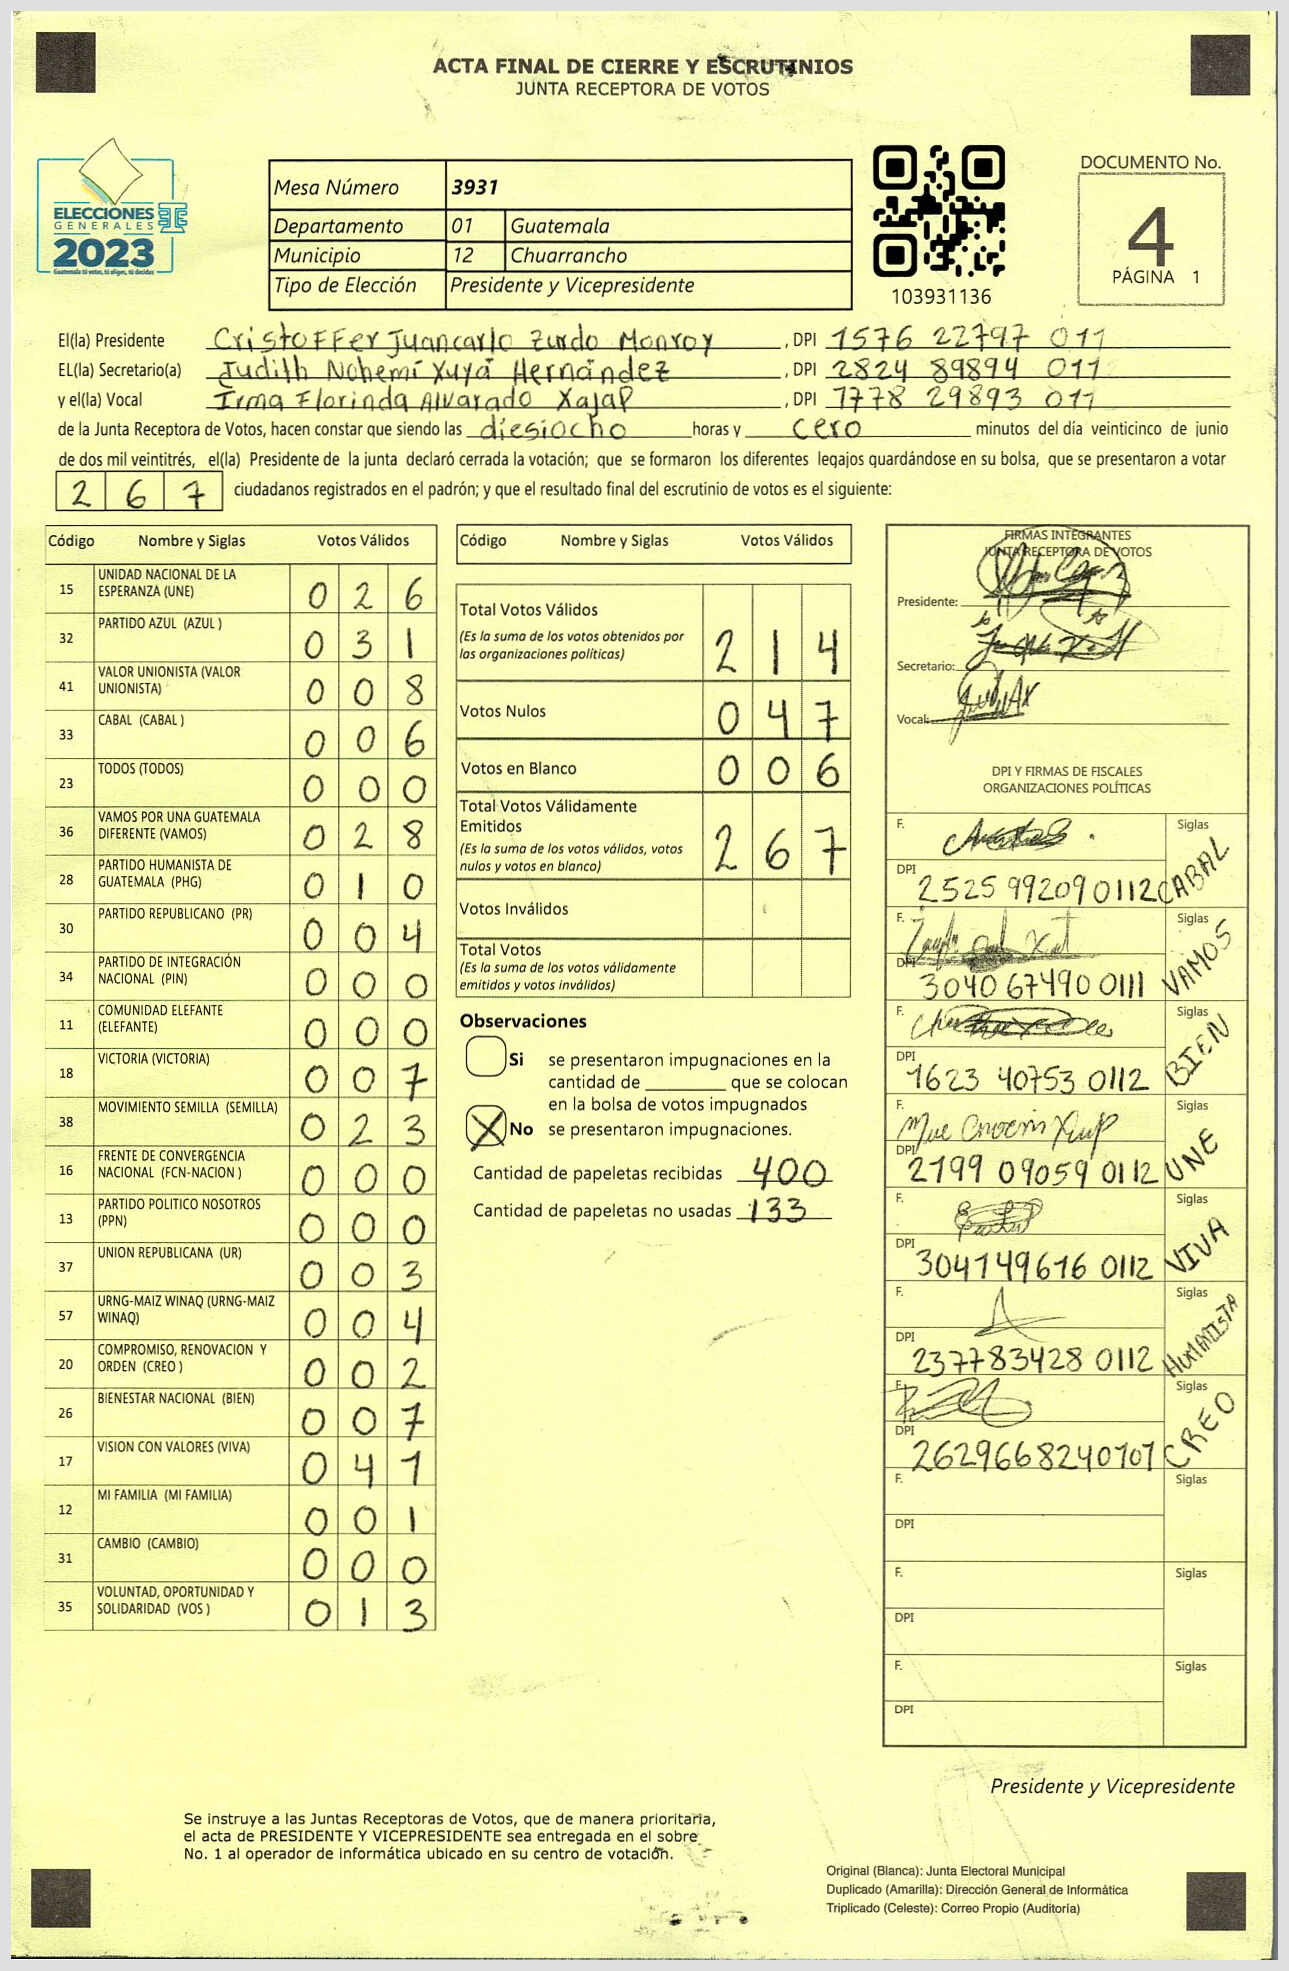 ACTA FINAL DE CIERRE Y ESCRUTINIOS
JUNTA RECEPTORA DE VOTOS
ELECCIONES
GENERALES
2023
Guatemala tú votas, tú eliges, tú decides
Mesa Número 3931
Departamento 01 Guatemala
Municipio 12 Chuarrancho
Tipo de Elección Presidente y Vicepresidente
103931136
DOCUMENTO No.
4
PÁGINA 1
El(la) Presidente Cristoffer Juancarlo Zurdo Monroy, DPI 1576 22797 011
EL(la) Secretario(a) Judith Nohemí Xuyá Hernández, DPI 2824 89894 011
y el(la) Vocal Irma Florinda Alvarado Xajap, DPI 1778 29893 011
de la Junta Receptora de Votos, hacen constar que siendo las diesiocho horas y cero minutos del día veinticinco de junio
de dos mil veintitrés, el(la) Presidente de la junta declaró cerrada la votación; que se formaron los diferentes legajos guardándose en su bolsa, que se presentaron a votar
2 6 7 ciudadanos registrados en el padrón; y que el resultado final del escrutinio de votos es el siguiente:
Código Nombre y Siglas Votos Válidos
15 UNIDAD NACIONAL DE LA
ESPERANZA (UNE) 0 2 6
32 PARTIDO AZUL (AZUL ) 0 3 1
41 VALOR UNIONISTA (VALOR
UNIONISTA) 0 0 8
33 CABAL (CABAL ) 0 0 6
23 TODOS (TODOS) 0 0 0
36 VAMOS POR UNA GUATEMALA
DIFERENTE (VAMOS) 0 2 8
28 PARTIDO HUMANISTA DE
GUATEMALA (PHG) 0 1 0
30 PARTIDO REPUBLICANO (PR) 0 0 4
34 PARTIDO DE INTEGRACIÓN
NACIONAL (PIN) 0 0 0
11 COMUNIDAD ELEFANTE
(ELEFANTE) 0 0 0
18 VICTORIA (VICTORIA) 0 0 7
38 MOVIMIENTO SEMILLA (SEMILLA) 0 2 3
16 FRENTE DE CONVERGENCIA
NACIONAL (FCN-NACION ) 0 0 0
13 PARTIDO POLITICO NOSOTROS
(PPN) 0 0 0
37 UNION REPUBLICANA (UR) 0 0 3
57 URNG-MAIZ WINAQ (URNG-MAIZ
WINAQ) 0 0 4
20 COMPROMISO, RENOVACION Y
ORDEN (CREO ) 0 0 2
26 BIENESTAR NACIONAL (BIEN) 0 0 7
17 VISION CON VALORES (VIVA) 0 4 1
12 MI FAMILIA (MI FAMILIA) 0 0 1
31 CAMBIO (CAMBIO) 0 0 0
35 VOLUNTAD, OPORTUNIDAD Y
SOLIDARIDAD (VOS ) 0 1 3
Código Nombre y Siglas Votos Válidos
Total Votos Válidos
(Es la suma de los votos obtenidos por
las organizaciones políticas) 2 1 4
Votos Nulos 0 4 7
Votos en Blanco 0 0 6
Total Votos Válidamente
Emitidos
(Es la suma de los votos válidos, votos
nulos y votos en blanco) 2 6 7
Votos Inválidos
Total Votos
(Es la suma de los votos válidamente
emitidos y votos inválidos)
Observaciones
Si se presentaron impugnaciones en la
cantidad de ________ que se colocan
en la bolsa de votos impugnados
X No se presentaron impugnaciones.
Cantidad de papeletas recibidas 400
Cantidad de papeletas no usadas 133
FIRMAS INTEGRANTES
JUNTA RECEPTORA DE VOTOS
Presidente:
Secretario:
Vocal:
DPI Y FIRMAS DE FISCALES
ORGANIZACIONES POLÍTICAS
F. Siglas
DPI 2525 99209 0112 CABAL
F. Siglas
DPI 3040 67490 0111 VAMOS
F. Siglas
DPI 1623 40753 0112 BIEN
F. Siglas
DPI 2199 09059 0112 UNE
F. Siglas
DPI 304149616 0112 VIVA
F. Siglas
DPI 237783428 0112 HUMANISTA
F. Siglas
DPI 2629668240101 CREO
F. Siglas
DPI
F. Siglas
DPI
F. Siglas
DPI
Presidente y Vicepresidente
Se instruye a las Juntas Receptoras de Votos, que de manera prioritaria,
el acta de PRESIDENTE Y VICEPRESIDENTE sea entregada en el sobre
No. 1 al operador de informática ubicado en su centro de votación.
Original (Blanca): Junta Electoral Municipal
Duplicado (Amarilla): Dirección General de Informática
Triplicado (Celeste): Correo Propio (Auditoría)